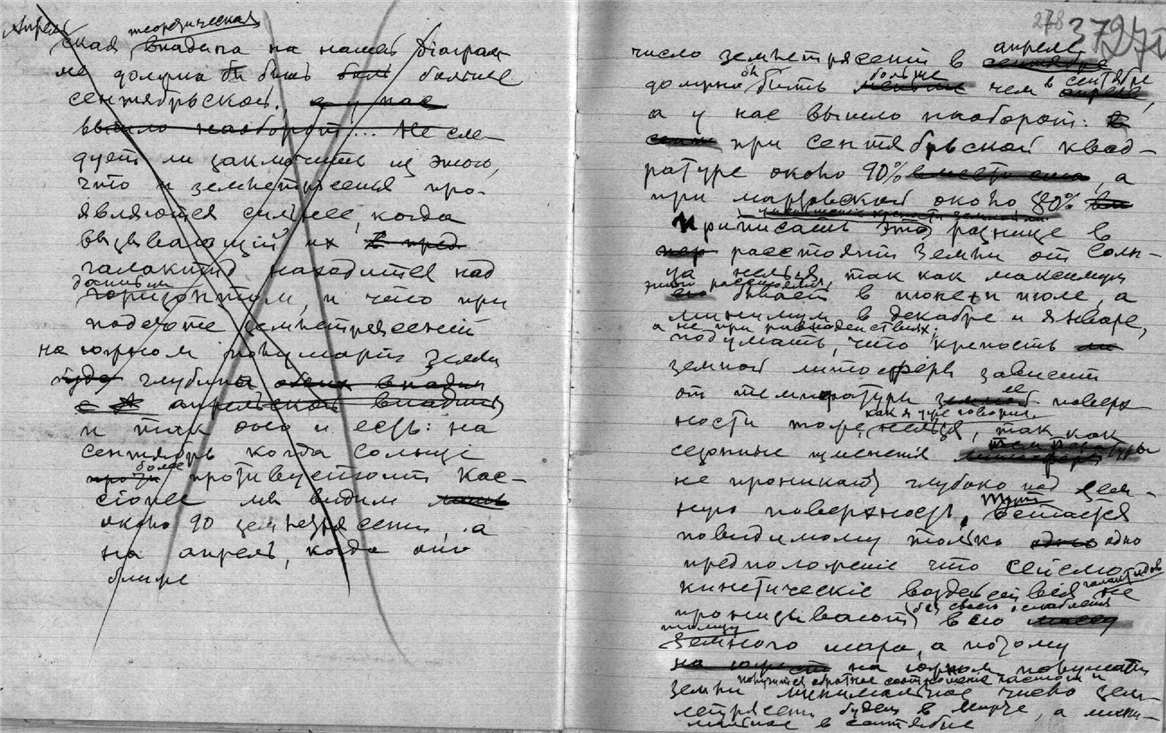 теоретическая
ская впадина на нашей диаграм-
ме должна бы быть больше
сентябрьской. а у нас
вышло наоборот... Не сле-
дует ли заключить из этого,
что и землетрясения про-
являются сильнее, когда
вызывающий их
галактид находится над
горизонтом, и что при
подсчете землетрясений
на южном полушарии земли
глубина
апрельской впадины
и так оно и есть: на
сентябрь когда солнце
более
противустоит Кас-
сіопее мы видим
около 90 землетрясений а
на апрель, когда оно
ближе
278 372
апреле
число землетрясений в сентябре
бы больше в сентябре
должно быть меньше чем апреле,
а у нас вышло наоборот:
при сентябрьской квад-
ратуре около 90% а
при мартовской около 80%
Приписать это разнице в
расстоянии Земли от Солн-
ца нельзя, так как максимум
этого расстояния
бывает в июне и июле, а
минимум в декабре и январе,
а не при равноденствиях.
подумать, что крепость
земной литосферы зависит
от температуры ее поверх-
как я уже говорил
ности тоже нельзя, так как
температуры
сезонные
не проникают глубоко под зем-
ную поверхность,
повидимому только одно
предположение что сейсмо-
галактидов
кинетические воздействия не
без своего ослабления
пронизывают всю
толщу
Земного шара, а потому
на южном полушарии
получится обратное соотношение
Земли минимальное число зем-
летрясений будет в марте, а мини-
мальное в сентябре